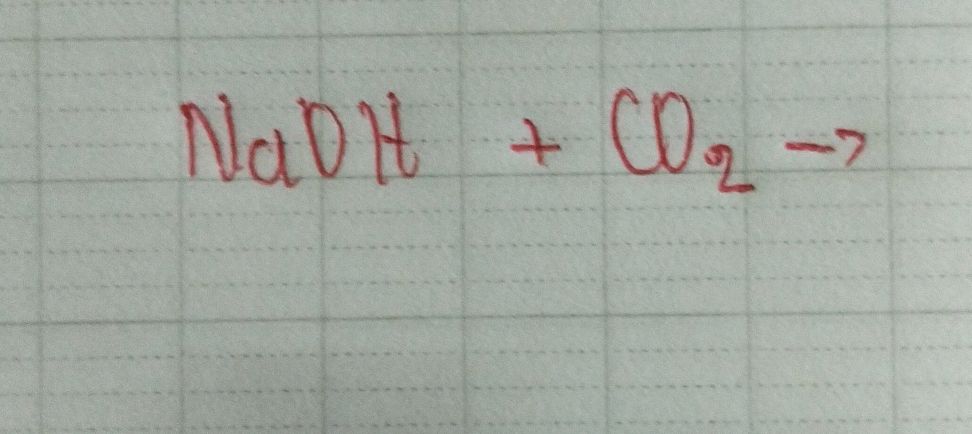 NaOH + CO₂ →